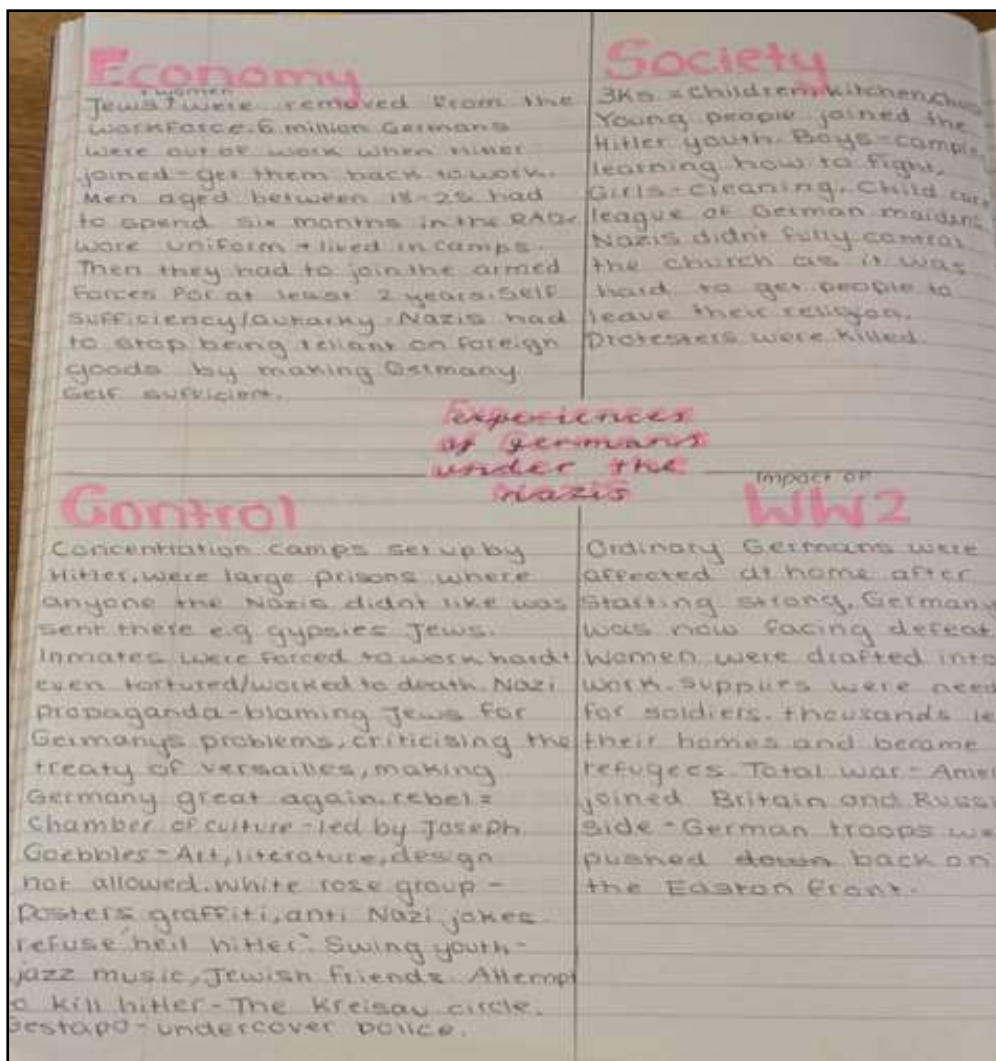 Economy
+ women
Jews were removed from the
workforce. 6 million Germans
were out of work when Hitler
joined - get them back to work.
Men aged between 18-25 had
to spend six months in the RAD-
wore uniform + lived in camps.
Then they had to join the armed
forces for at least 2 years. Self
sufficiency/autarky - Nazis had
to stop being reliant on foreign
goods by making Germany
self sufficient.
Society
3Ks = Children, kitchen,
Young people joined the
Hitler youth. Boys - camping
learning how to fight,
Girls - cleaning, child care
league of German maidens
Nazis didnt fully control
the church as it was
hard to get people to
leave their religion.
Protesters were killed.
Experiences
of Germans
under the
Nazis
Control
Concentration camps set up by
Hitler, were large prisons where
anyone the Nazis didnt like was
sent there e.g gypsies Jews.
Inmates were forced to work hard +
even tortured/worked to death. Nazi
propaganda - blaming Jews for
Germanys problems, criticising the
treaty of versailles, making
Germany great again. rebel =
Chamber of culture - led by Joseph
Goebbles - Art, literature, design
not allowed. White rose group -
Posters, graffiti, anti Nazi jokes
refuse 'heil hitler'. Swing youth -
jazz music, Jewish friends. Attempt
kill hitler - The Kreisau circle.
Gestapo - undercover police.
Impact of
WW2
Ordinary Germans were
affected at home after
starting strong, Germany
was now facing defeat
Women were drafted into
work. Supplies were need
for soldiers. thousands le
their homes and became
refugees. Total war - Amer
joined Britain and Russi
side - German troops we
pushed down back on
the Easton front.